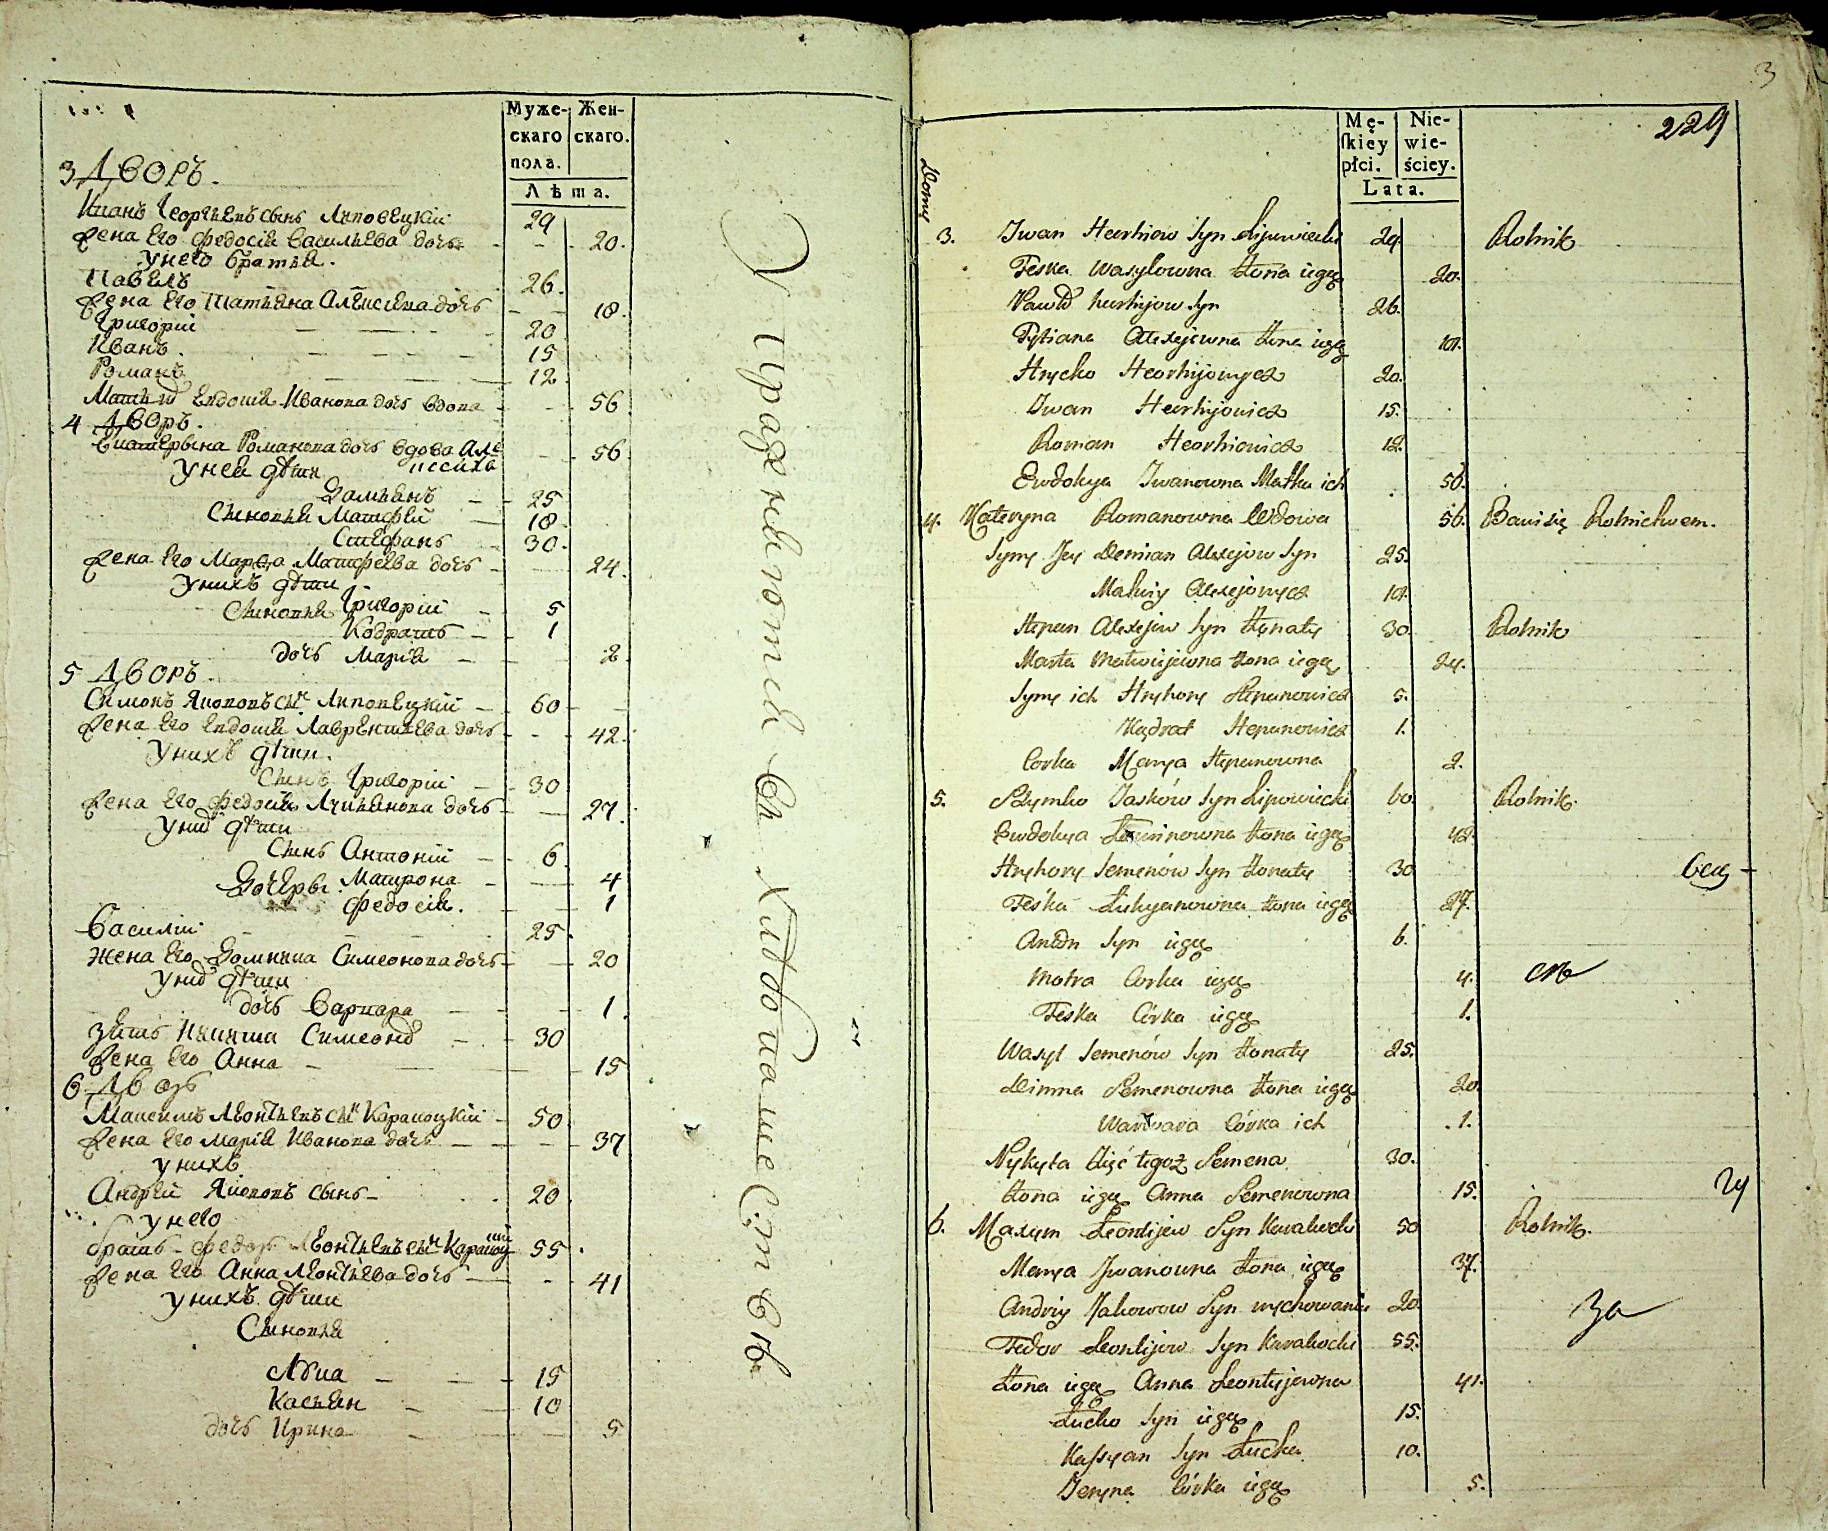 Муже-
скаго
пола.
Жен-
скаго.
Лѣта.
3 Дворъ.
Иванъ Георгиевъ сынъ Липовецкiй 29
Жена его Федосiя Васильева дочь 20.
У него братья.
Павелъ 26.
Жена его Татiяна Алексиева дочь 18.
Григорiй 20
Иванъ. 15
Романъ 12.
Мать их Евдотiя Иванова дочь вдова 56
4 Дворъ.
Екатерына Романова дочь вдова Але 56
ксеиха
У ней дѣти
Дамiянъ 25
Сыновья Матфiй 18.
Стефанъ 30.
Жена его Марфа Матфеева дочь 24.
У нихъ дѣти
Сыновья Григорiй 5
Кодратъ 1
дочь Марiя 2
5 Дворъ.
Симонъ Якововъ сынъ Липовецкiй 60
Жена его Евдотiя Лаврентiева дочь 42.
У нихъ дѣти.
Сынъ Григорiй 30
Жена его Федосiя Лукiянова дочь 27.
У них дѣти
Сынъ Антонiй 6.
Дочеры Матрона 4
Федосiя. 1
Василiй 25.
Жена его Домникiа Симеонова дочь 20
У них дѣти
дочь Варвара 1.
Зять Никита Симеонов 30
Жена его Анна 15
6 Дворъ
Максимъ Леонтiевъ сынъ Каравоцкiй 50.
Жена его Марiя Иванова дочь 37
у нихъ
Андрей Яковов сынъ 20.
у него
братъ Федоръ Леонтiевъ сынъ Каравоцкiй 55.
Жена его Анна Леонтiева дочь 41
У нихъ дѣти
Сыновья
Лука 15
Касiян 10
дочь Ирина 5
Упражняются въ хлѣбопашествѣ
3
229
Męſkiey płci.
Niewieściey.
Lata.
Domy
3. Iwan Heorhiow Syn Lipowiecki 29. Rolnik
Feska Wasylowna żona iego 20.
Pawło heorhijow Syn 26.
Tytiana Alexejewna żona iego 18.
Hrycko Heorhijowycz 20.
Iwan Heorhijowicz 15.
Roman Heorhiowicz 12.
Ewdokya Iwanowna Matka ich 56.
4. Kateryna Romanowna Wdowa 56. Bawi się Rolnictwem.
Syny Jey Demian Alexejow Syn 25.
Matwiy Alexejowycz 18.
Stepan Alexejow Syn żonaty 30. Rolnik
Marta Matwiijewna żona iego 24.
Syny ich Hryhory Stepanowicz 5.
Kądrat Stepanowicz 1.
Corka Marya Stepanowna 2.
5. Szymko Jasków Syn Lipowiecki 60. Rolnik.
Ewdokya żona iego 42.
Hryhory Semenów Syn żonaty 30
Feśka Łukyanowna żona iego 27.
Anton Syn iego 6.
Motra Corka iego 4.
Feska Córka iego 1.
Wasyl Semenów Syn żonaty 25.
Dimna Semenowna żona iego 20
Warwara Córka ich 1.
Nykyta Zięć tegoż Semena 30.
żona iego Anna Semenowna 15.
6. Maxym Leontijew Syn Karakocki 50 Rolnik.
Marya Jwanowna żona iego 37.
Andriy Jakowow Syn wychowaniec 20.
Fedor Leontijow Syn Karakocki 55.
żona iego Anna Leontyjewna 41.
Łucko Syn iego 15.
Kaſsyan Syn Łucka 10.
Jeryna Córka iego 5.